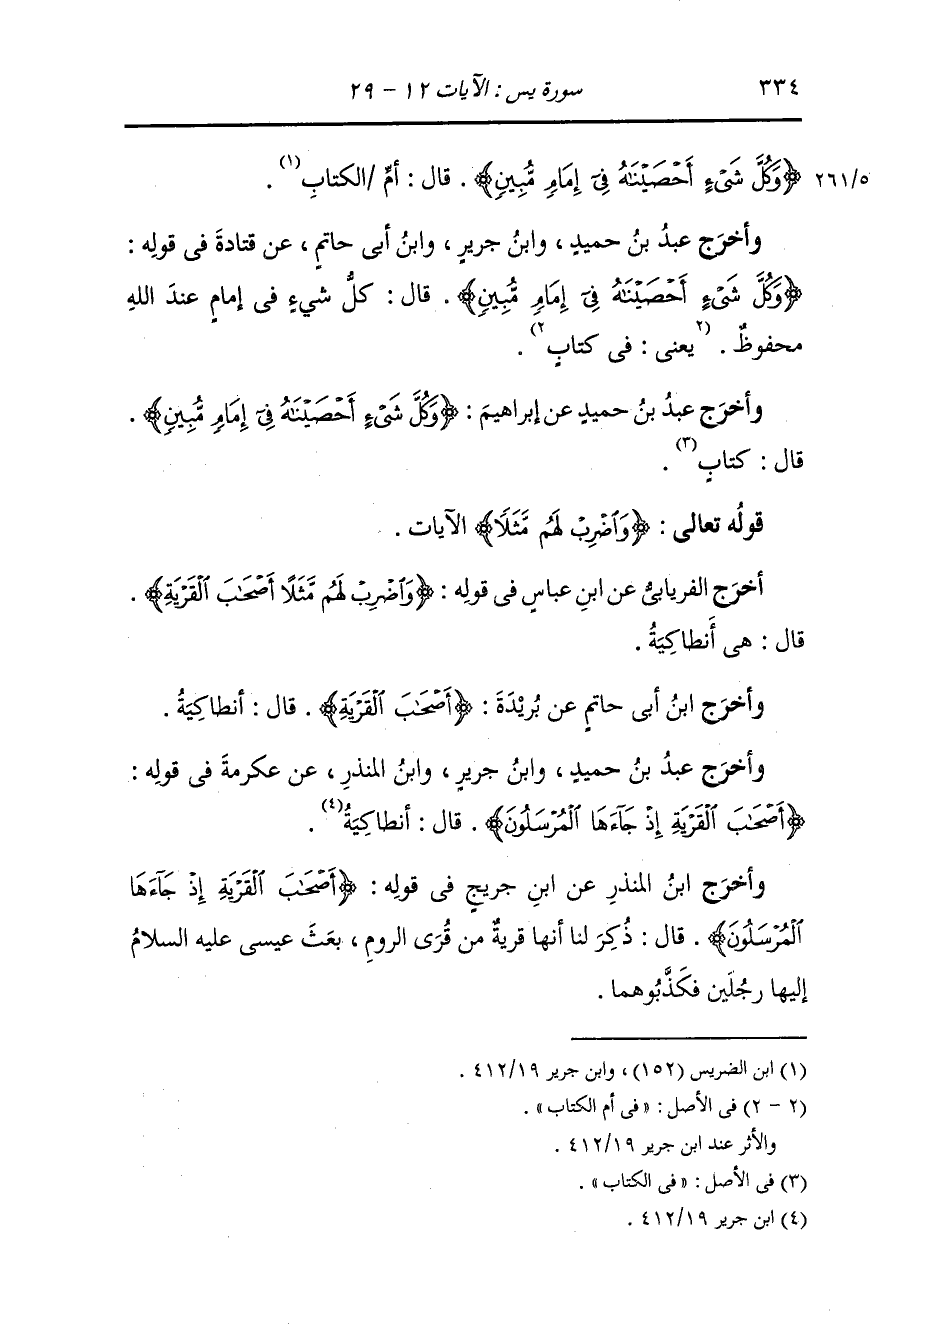 ٣٣٤ سورة يس : الآيات ١٢ - ٢٩
٢٦١/٥ ﴿وَكُلَّ شَىْءٍ أَحْصَيْنَٰهُ فِىٓ إِمَامٍ مُّبِينٍ﴾ . قال : أمُّ /الكتابِ(١) .
وأخرَج عبدُ بنُ حميدٍ ، وابنُ جريرٍ ، وابنُ أبى حاتمٍ ، عن قتادةَ فى قولِه :
﴿وَكُلَّ شَىْءٍ أَحْصَيْنَٰهُ فِىٓ إِمَامٍ مُّبِينٍ﴾ . قال : كلُّ شيءٍ فى إمامٍ عندَ اللهِ
محفوظٌ . (٢)يعنى : فى كتابٍ(٢) .
وأخرَج عبدُ بنُ حميدٍ عن إبراهيمَ : ﴿وَكُلَّ شَىْءٍ أَحْصَيْنَٰهُ فِىٓ إِمَامٍ مُّبِينٍ﴾ .
قال : كتابٍ(٣) .
قولُه تعالى : ﴿وَٱضْرِبْ لَهُم مَّثَلًا﴾ الآيات .
أخرَج الفريابىُّ عن ابنِ عباسٍ فى قولِه : ﴿وَٱضْرِبْ لَهُم مَّثَلًا أَصْحَٰبَ ٱلْقَرْيَةِ﴾ .
قال : هى أَنطاكِيَةُ .
وأخرَج ابنُ أبى حاتمٍ عن بُرَيْدَةَ : ﴿أَصْحَٰبَ ٱلْقَرْيَةِ﴾ . قال : أنطاكِيَةُ .
وأخرَج عبدُ بنُ حميدٍ ، وابنُ جريرٍ ، وابنُ المنذرِ ، عن عكرمةَ فى قولِه :
﴿أَصْحَٰبَ ٱلْقَرْيَةِ إِذْ جَآءَهَا ٱلْمُرْسَلُونَ﴾ . قال : أنطاكِيَةُ(٤) .
وأخرَج ابنُ المنذرِ عن ابنِ جريجٍ فى قولِه : ﴿أَصْحَٰبَ ٱلْقَرْيَةِ إِذْ جَآءَهَا
ٱلْمُرْسَلُونَ﴾ . قال : ذُكِرَ لنا أنها قريةٌ من قُرَى الرومِ ، بعَثَ عيسى عليه السلامُ
إليها رجُلَين فكَذَّبُوهما .
(١) ابن الضريس (١٥٢) ، وابن جرير ٤١٢/١٩ .
(٢ - ٢) فى الأصل : « فى أم الكتاب » .
والأثر عند ابن جرير ٤١٢/١٩ .
(٣) فى الأصل : « فى الكتاب » .
(٤) ابن جرير ٤١٢/١٩ .